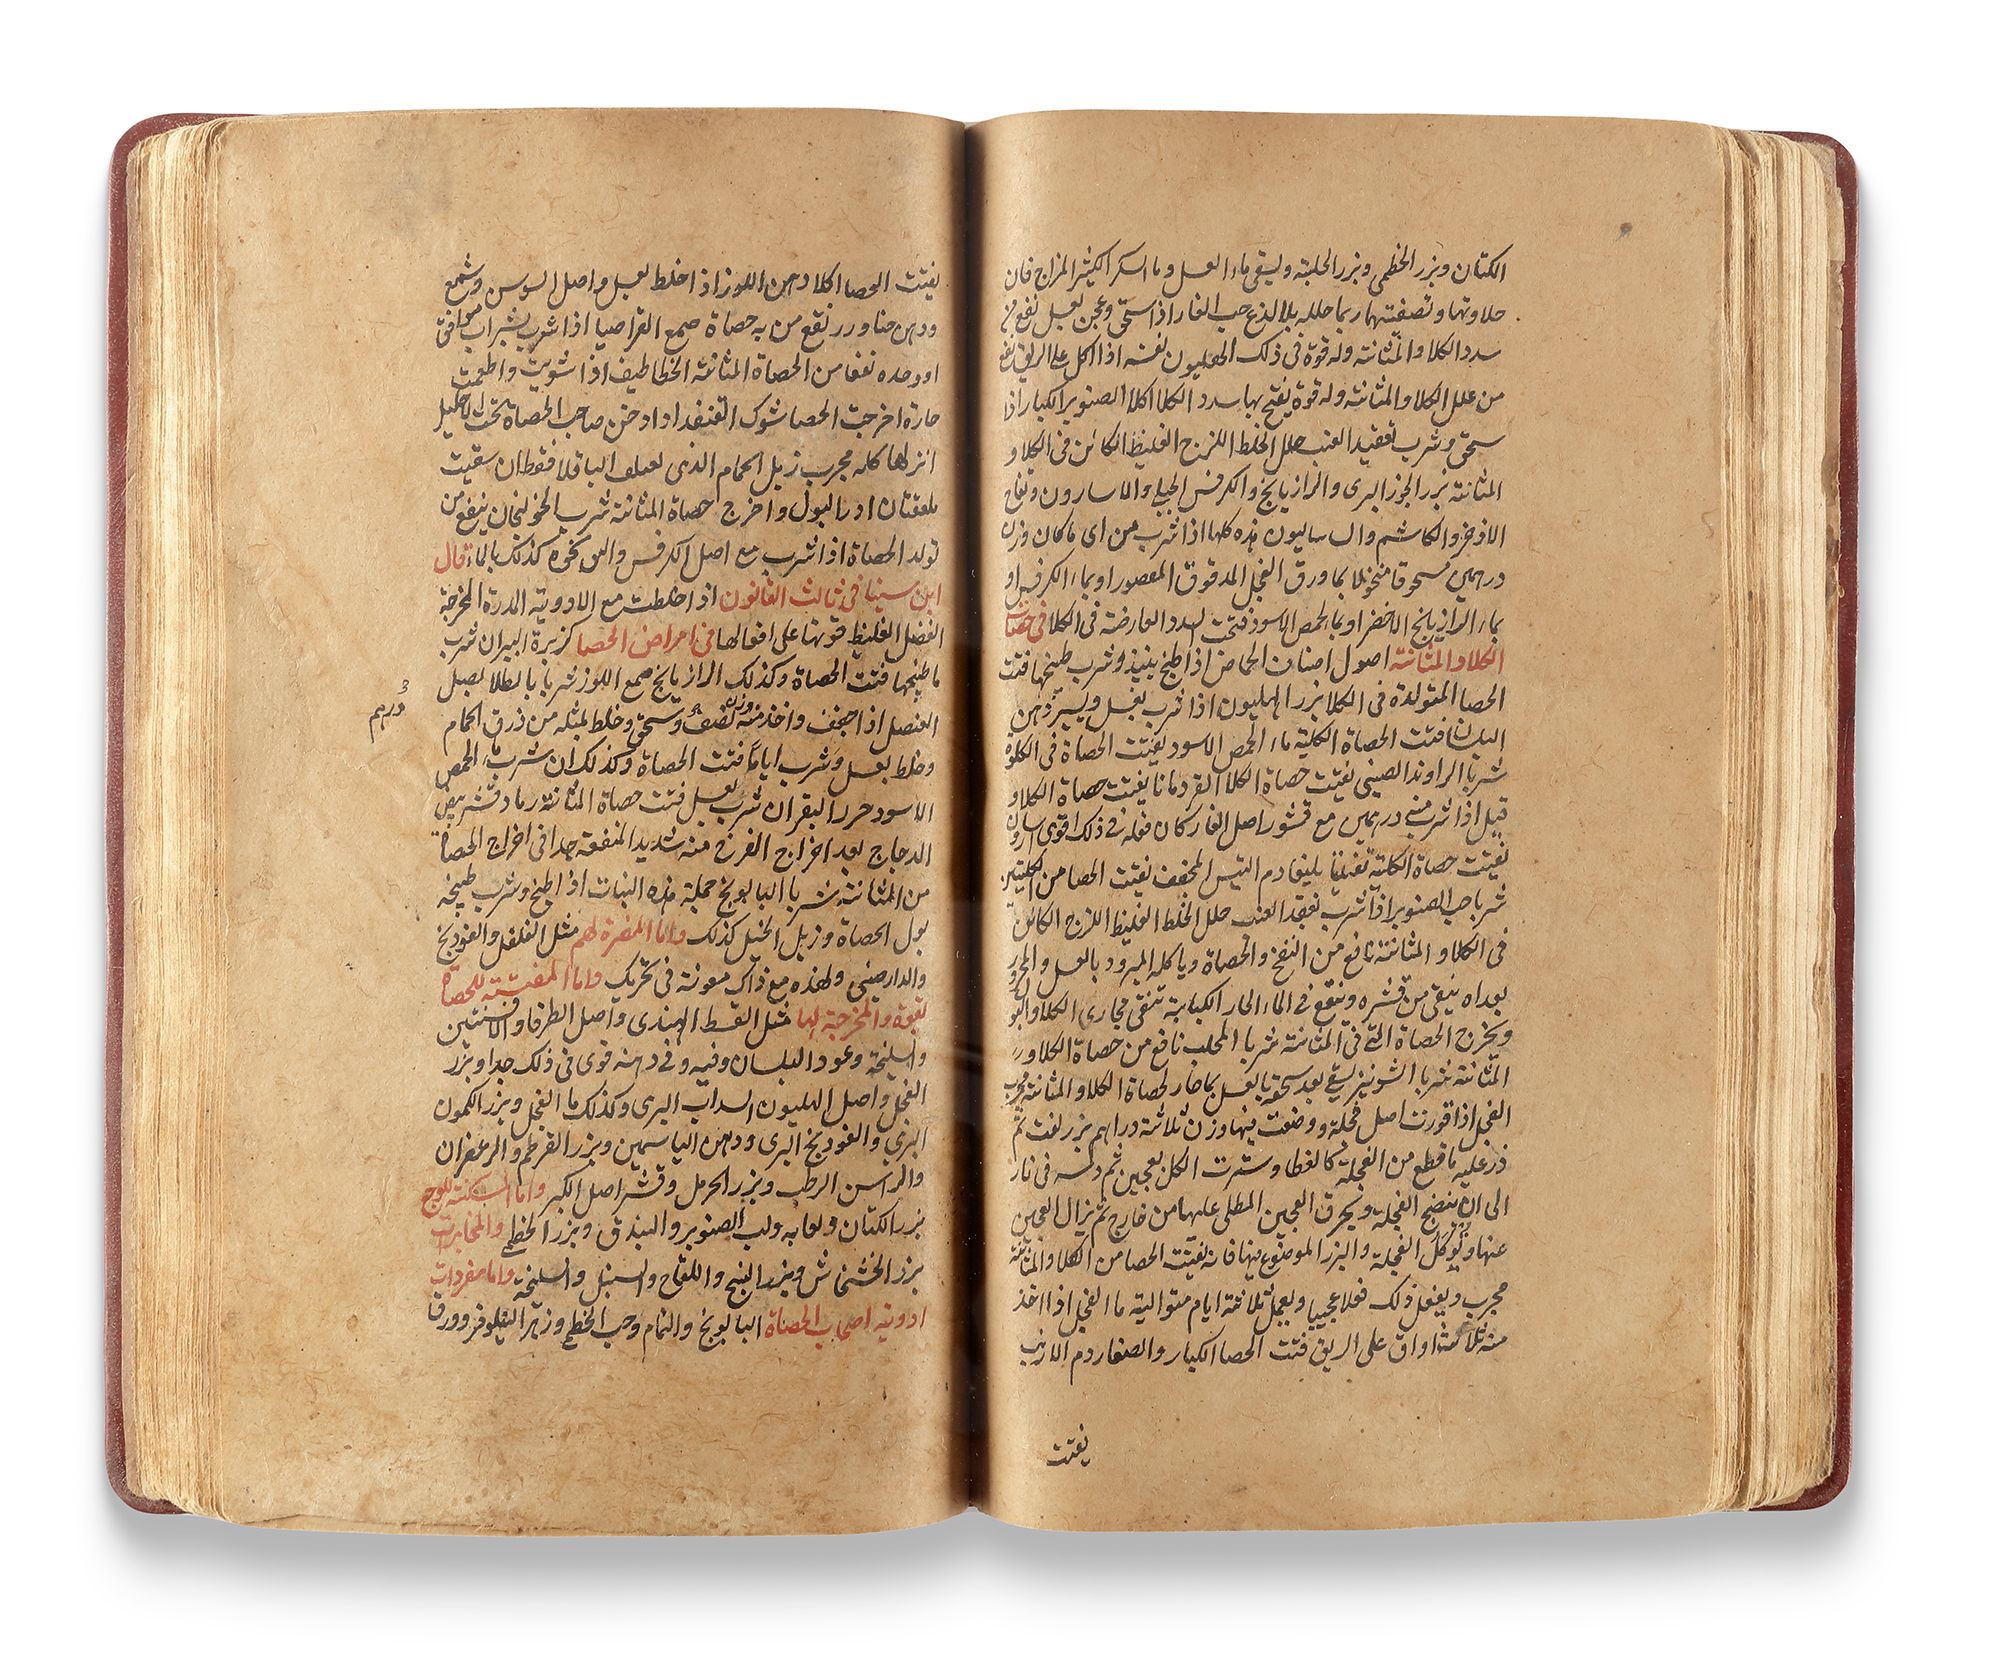 الكتان وبزر الخطمى وبزر الحلبة ويسقى ماء العسل وما السكر الكثير المزاج فان
حلاوتها وتصفيتهما ربما حلله بلا لذع حب الغار اذا سحق وعجن بعسل نفع من
سدد الكلا والمثانة وله قوة فى ذلك الهليون نفسه اذا اكل على الريق نفع
من علل الكلا والمثانة وله قوة يفتح بها سدد الكلا اكلا الصنوبر الكبار اذا
سحق وشرب بعقيد العنب حلل الخلط اللزج الغليظ الكائن فى الكلا و
المثانة بزر الجزر البرى والرازيانج والكرفس الجبلى والاسارون وفقاح
الاذخر والكاشم والساليون هذه كلها اذا شرب من اى ما كان وزن
درهمين مسحوقا منخولا بما ورق الفجل المدقوق المعصور او بماء الكرفس او
بماء الرازيانج الاخضر او بما الحمص الاسود فتحت السدد العارضة فى الكلا فى حصاة
الكلا والمثانة اصول اصناف الحماض اذا طبخ بنبيذ وشرب طبيخها فتت
الحصا المتولدة فى الكلا بزر الهليون اذا شرب بعسل ويسير دهن
البلسان فتت الحصاة الكلية ماء الحمص الاسود يفتت الحصاة فى الكلوة
شربا الراوند الصينى يفتت حصاة الكلا القردمانا يفتت حصاة الكلا و
قيل اذا شرب منه درهمين مع قشور اصل الغار كان فعله فى ذلك اقوى
يفتت حصاة الكلية تفتيتا بليغا دم التيس المجفف يفتت الحصا من الكليتين
شربا حب الصنوبر اذا شرب بعقيد العنب حلل الخلط الغليظ اللزج الكائن
فى الكلا والمثانة نافع من النفخ والحصاة وياكله المبرود بالعسل والمحرور
بعد ان ينقى من قشره وينقع فى الماء الحار الكبابة تنقى مجارى الكلا والبول
ويخرج الحصاة التى فى المثانة شربا المحلب نافع من حصاة الكلا و
المثانة شربا الشونيز يسقى بعد سحقه بالعسل بما حار لحصاة الكلا والمثانة مجرب
الفجل اذا قورت اصل فجلة ووضعت فيها وزن ثلاثة دراهم بزر لفت ثم
ذر عليه ما قطع من الفجلة كالغطا وسترت الكل بعجين ثم دسه فى نار
الى ان ينضج الفجلة ويحرق العجين المطلى عليها من خارج ثم يزال العجين
عنها وتوكل الفجلة والبزر الموضوع فيها فانه يفتت الحصا من الكلا والمثانة
مجرب ويفعل ذلك فعلا عجيبا ويعمل ثلاثة ايام متوالية ما الفجل اذا اخذ
منه ثلاثة اواق على الريق فتت الحصا الكبار والصغار دم الارنب
يفتت
يفتت الحصا اكلا دهن اللوز اذا خلط بعسل واصل السوسن وشمع
ودهن حنا وورد نفع من به حصاة صمغ القراصيا اذا شرب بشراب موافق
او وحده نفعا من الحصاة المثانة الخطاطيف اذا شويت واطعمت
حارة اخرجت الحصا شوك القنفذ اذا دخن صاحب الحصاة تحت الاحليل
انزلها كله مجرب زبل الحمام الذى يعلف الباقلا فقط ان سقيت
ملعقتان ادر البول واخرج حصاة المثانة شرب الخولنجان ينفع من
تولد الحصاة اذا شرب مع اصل الكرفس والبن كذلك بالماء قال
ابن سينا فى ثالث القانون اذا خلطت مع الادوية المدرة المخرجة
الفضل الغليظ قوتها على افعالها فى امراض الحصا كزبرة البيران شرب
ما طبيخها فتت الحصاة وكذلك الرازيانج صمغ اللوز شربا بالطلا بصل
العنصل اذا جفف واخذ منه وزن نصف وسحق وخلط بمثله من ذرق الحمام
درهم
وخلط بعسل وشرب اياما فتت الحصاة وكذلك ان شرب بما الحمص
الاسود حرر البقر ان شرب بعسل فتت حصاة المثانة رماد قشر بيض
الدجاج بعد اخراج الفرخ منه شديد المنفعة جدا فى اخراج الحصاة
من المثانة شربا البابونج جملة هذه النبات اذا طبخ وشرب طبيخه
بول الحصاة وزبل الخيل كذلك واما المضرة لهم مثل الفلفل والفودنج
والدارصينى ولهذه مع ذلك معونة فى تحريك واما المفتتة للحصاة
بقوة والمخرجة لها مثل القسط الهندى واصل الطرفا والافسنتين
والسليخة وعود البلسان وفيه وفى دهنه قوى فى ذلك جدا وبزر
الفجل واصل الهليون السداب البرى وكذلك ما الفجل وبزر الكمون
البرى والفودنج البرى ودهن الياسمين وبزر القرطم والزعفران
والراسن الرطب وبزر الحرمل وقشر اصل الكبر واما المسكنة للوجع
بزر الكتان ولعابه ولب الصنوبر والبندق وبزر الخطمى والمخدرات
بزر الخشخاش وبزر البنج واللفاح والسنبل والسليخة واما مفردات
ادوية اصحاب الحصاة البابونج والنمام وحب الخطمى وزهر النيلوفر وورق